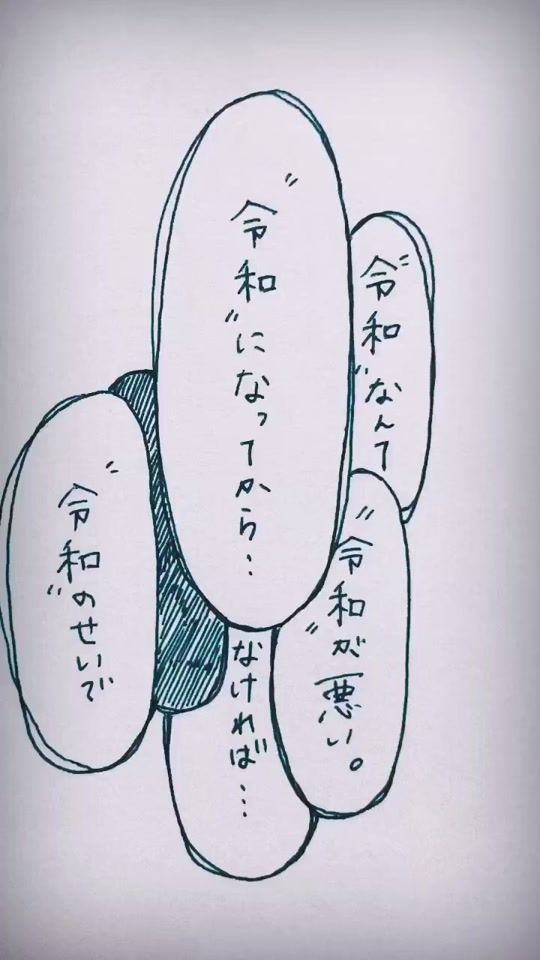 “令和”なんて
“令和”になってから…
“令和が”悪い。
なければ…
“令和”のせいで